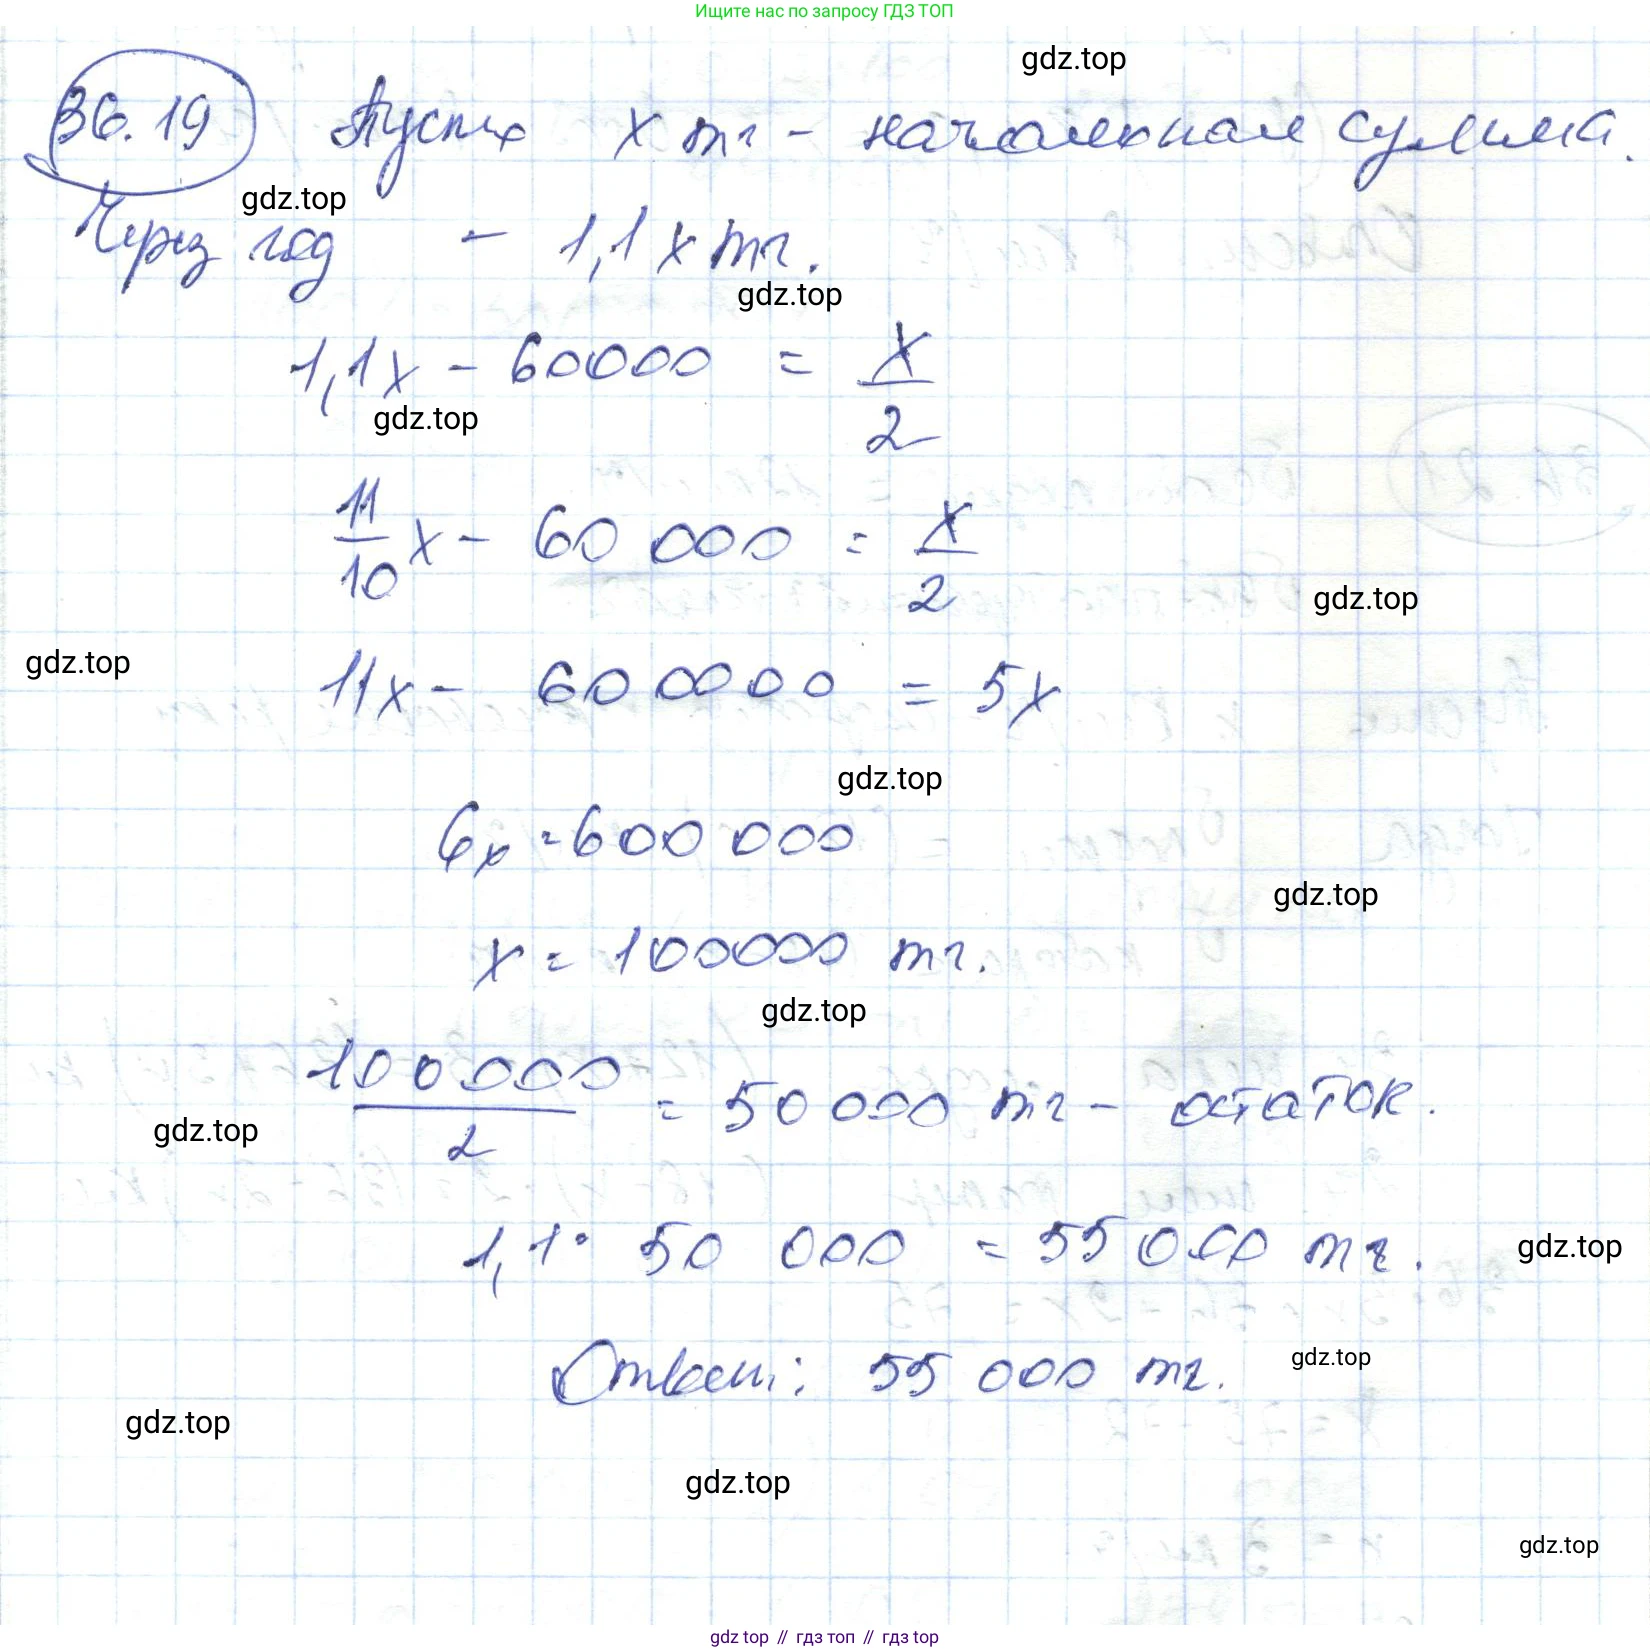 Ищите нас по запросу ГДЗ ТОП
gdz.top
36.19 Пусть x тг - начальная сумма.
gdz.top
Через год - 1,1x тг.
gdz.top
1,1x - 60000 = x/2
gdz.top
11/10 x - 60 000 = x/2
gdz.top
gdz.top
11x - 600000 = 5x
gdz.top
6x = 600 000
gdz.top
x = 100000 тг.
gdz.top
100000/2 = 50 000 тг - остаток.
gdz.top
1,1 · 50 000 = 55000 тг.
gdz.top
Ответ: 55 000 тг.
gdz.top
gdz.top
gdz.top
gdz.top
gdz top // гдз топ // гдз top